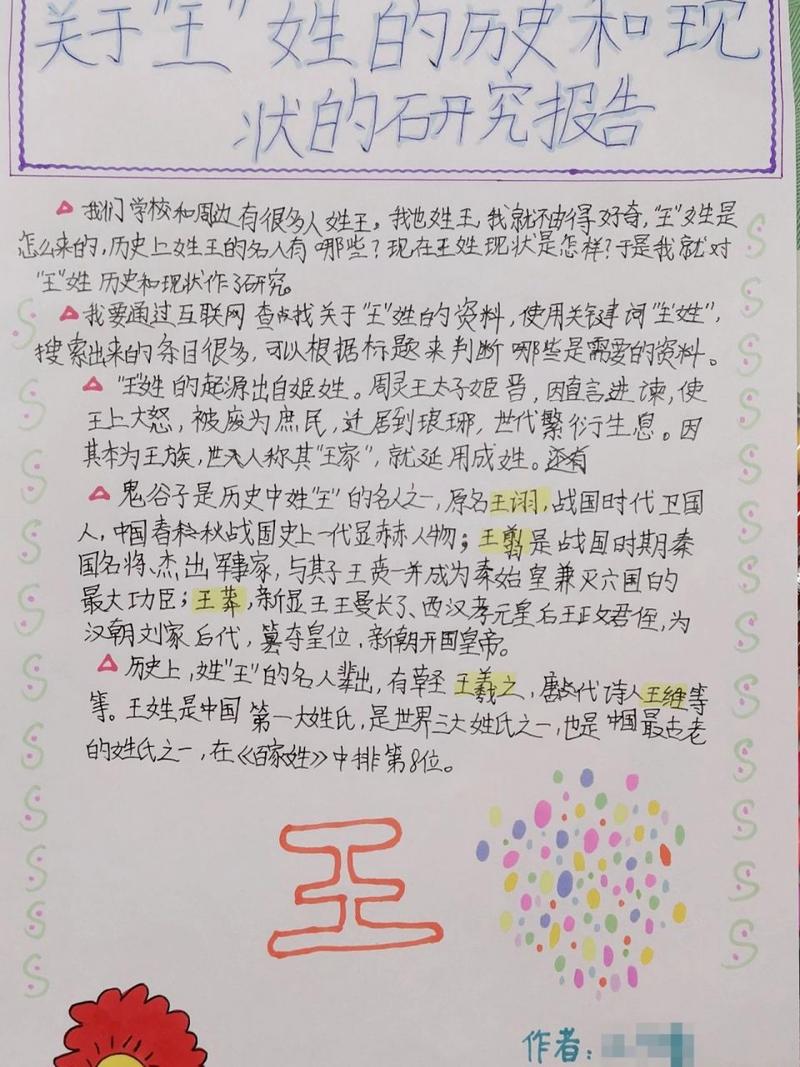 关于"王"姓的历史和现
状的研究报告
我们学校和周边有很多人姓王，我也姓王，我就不由得好奇，"王"姓是
怎么来的，历史上姓王的名人有哪些？现在王姓现状是怎样？于是我就对
"王"姓历史和现状作了研究。
我要通过互联网查找关于"王"姓的资料，使用关键词"王姓"，
搜索出来的条目很多，可以根据标题来判断哪些是需要的资料。
"王"姓的起源出自姬姓。周灵王太子姬晋，因直言进谏，使
王上大怒，被废为庶民，迁居到琅琊，世代繁衍生息。因
其本为王族，世人称其"王家"，就延用成姓。还有
鬼谷子是历史中姓"王"的名人之一，原名王诩，战国时代卫国
人，中国春秋战国史上一代显赫人物；王翦是战国时期秦
国名将、杰出军事家，与其子王贲一并成为秦始皇兼灭六国的
最大功臣；王莽，新显王王曼长子、西汉孝元皇后王政君侄，为
汉朝刘家后代，篡夺皇位，新朝开国皇帝。
历史上，姓"王"的名人辈出，有草圣王羲之，唐代诗人王维等
等。王姓是中国第一大姓氏，是世界三大姓氏之一，也是中国最古老
的姓氏之一，在《百家姓》中排第8位。
王
作者：